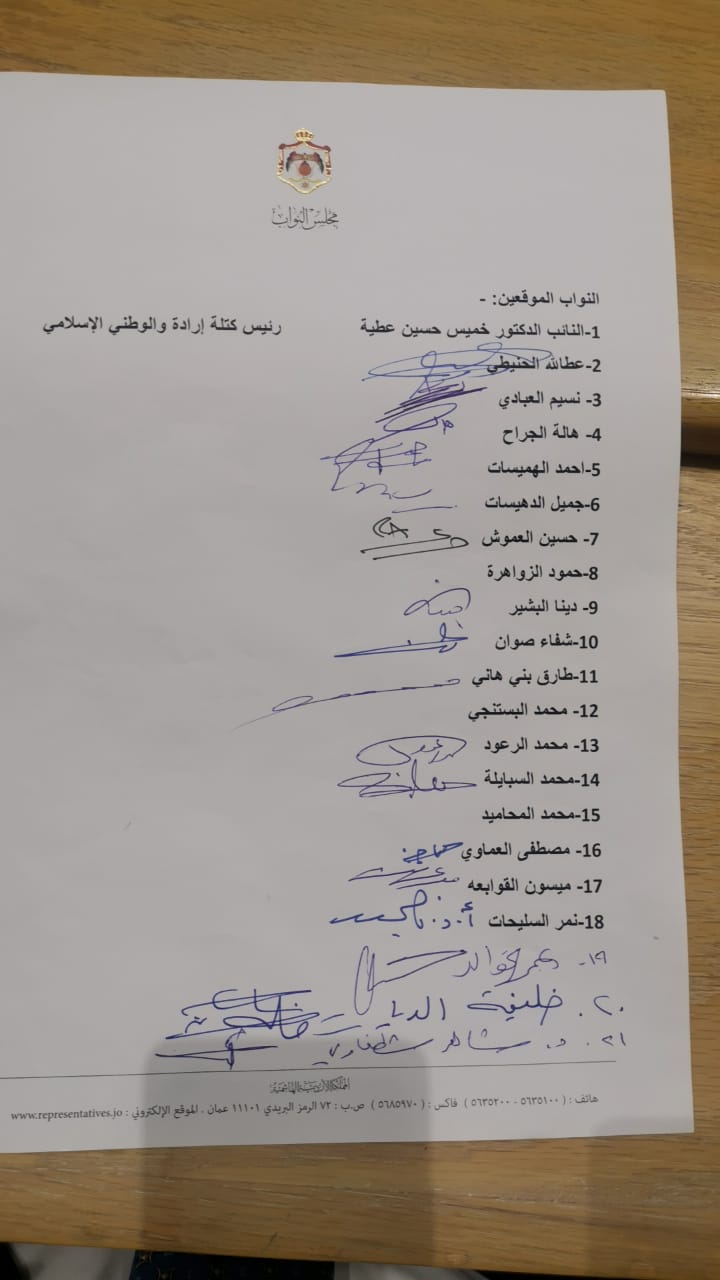 مجلس النواب
النواب الموقعين: -
1-النائب الدكتور خميس حسين عطية رئيس كتلة إرادة والوطني الإسلامي
2-عطالله الحنيطي
3- نسيم العبادي
4- هالة الجراح
5-احمد الهميسات
6-جميل الدهيسات
7- حسين العموش
8-حمود الزواهرة
9- دينا البشير
10-شفاء صوان
11-طارق بني هاني
12- محمد البستنجي
13- محمد الرعود
14-محمد السبايلة
15-محمد المحاميد
16- مصطفى العماوي
17- ميسون القوابعه
18-نمر السليحات
١٩-
٢٠. خليفة الديات
٢١. د. شاهر شطناوي
المملكة الأردنية الهاشمية
هاتف : ( ٥٦٣٥١٠٠ - ٥٦٣٥٢٠٠ ) فاكس : ( ٥٦٨٥٩٧٠ ) ص.ب : ٧٢ الرمز البريدي ١١١٠١ عمان . الموقع الإلكتروني : www.representatives.jo